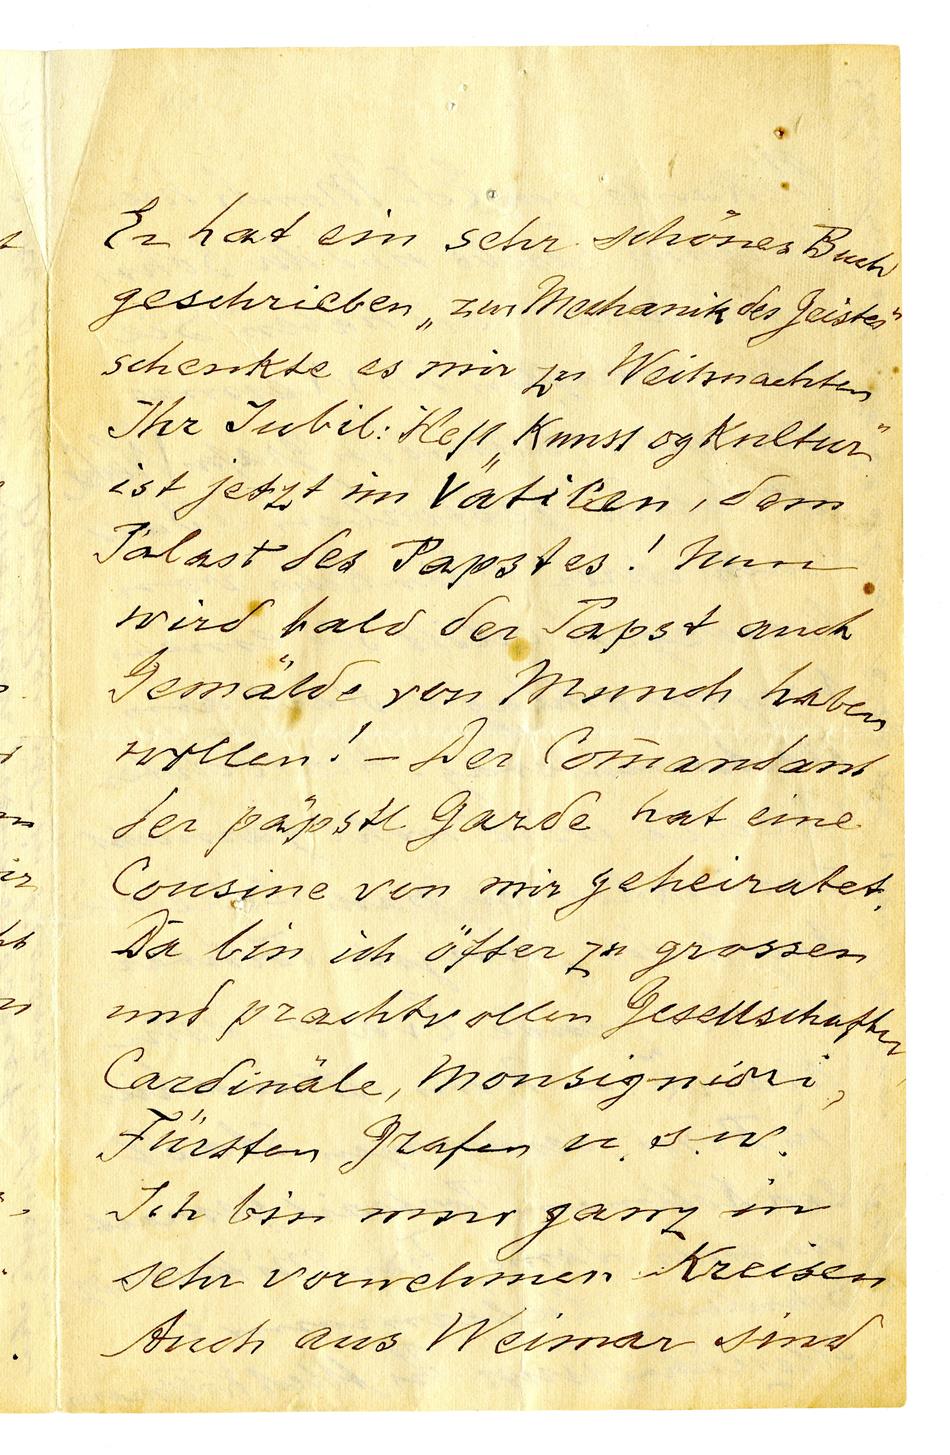 Er hat ein sehr schönes Buch
geschrieben „zur Mechanik des Geistes“
schenkte es mir zu Weihnachten
Ihr Jubil: Heft „Kunst og Kultur“
ist jetzt im Vatiken, dem
Palast des Papstes! Nun
wird bald der Papst auch
Gemälde von Munch haben
wollen! – Der Com̄andant
der päpstl Garde hat eine
Cousine von mir geheiratet.
Da bin ich öfter zu grossen
und prachtvollen Gesellschaften,
Cardinäle, Monsigniori,
Fürsten Grafen u. s. w.
Ich bin nur ganz in
sehr vornehmen Kreisen
Auch aus Weimar sind